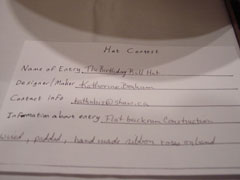 Hat Contest
Name of Entry The Birthday Hill Hat
Designer/Maker Katherine
Contact info
Information about entry Flat buckram Construction
wired, padded, hand made ribbon